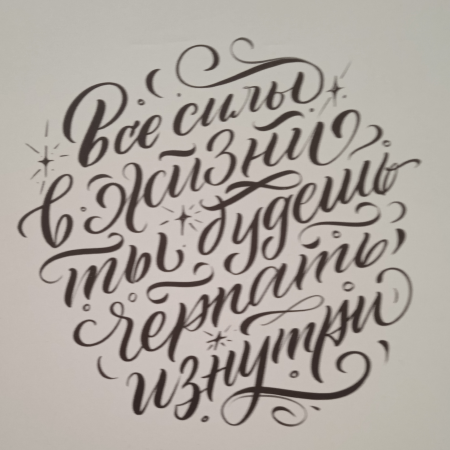 Все силы
в жизни
ты будешь
черпать
изнутри